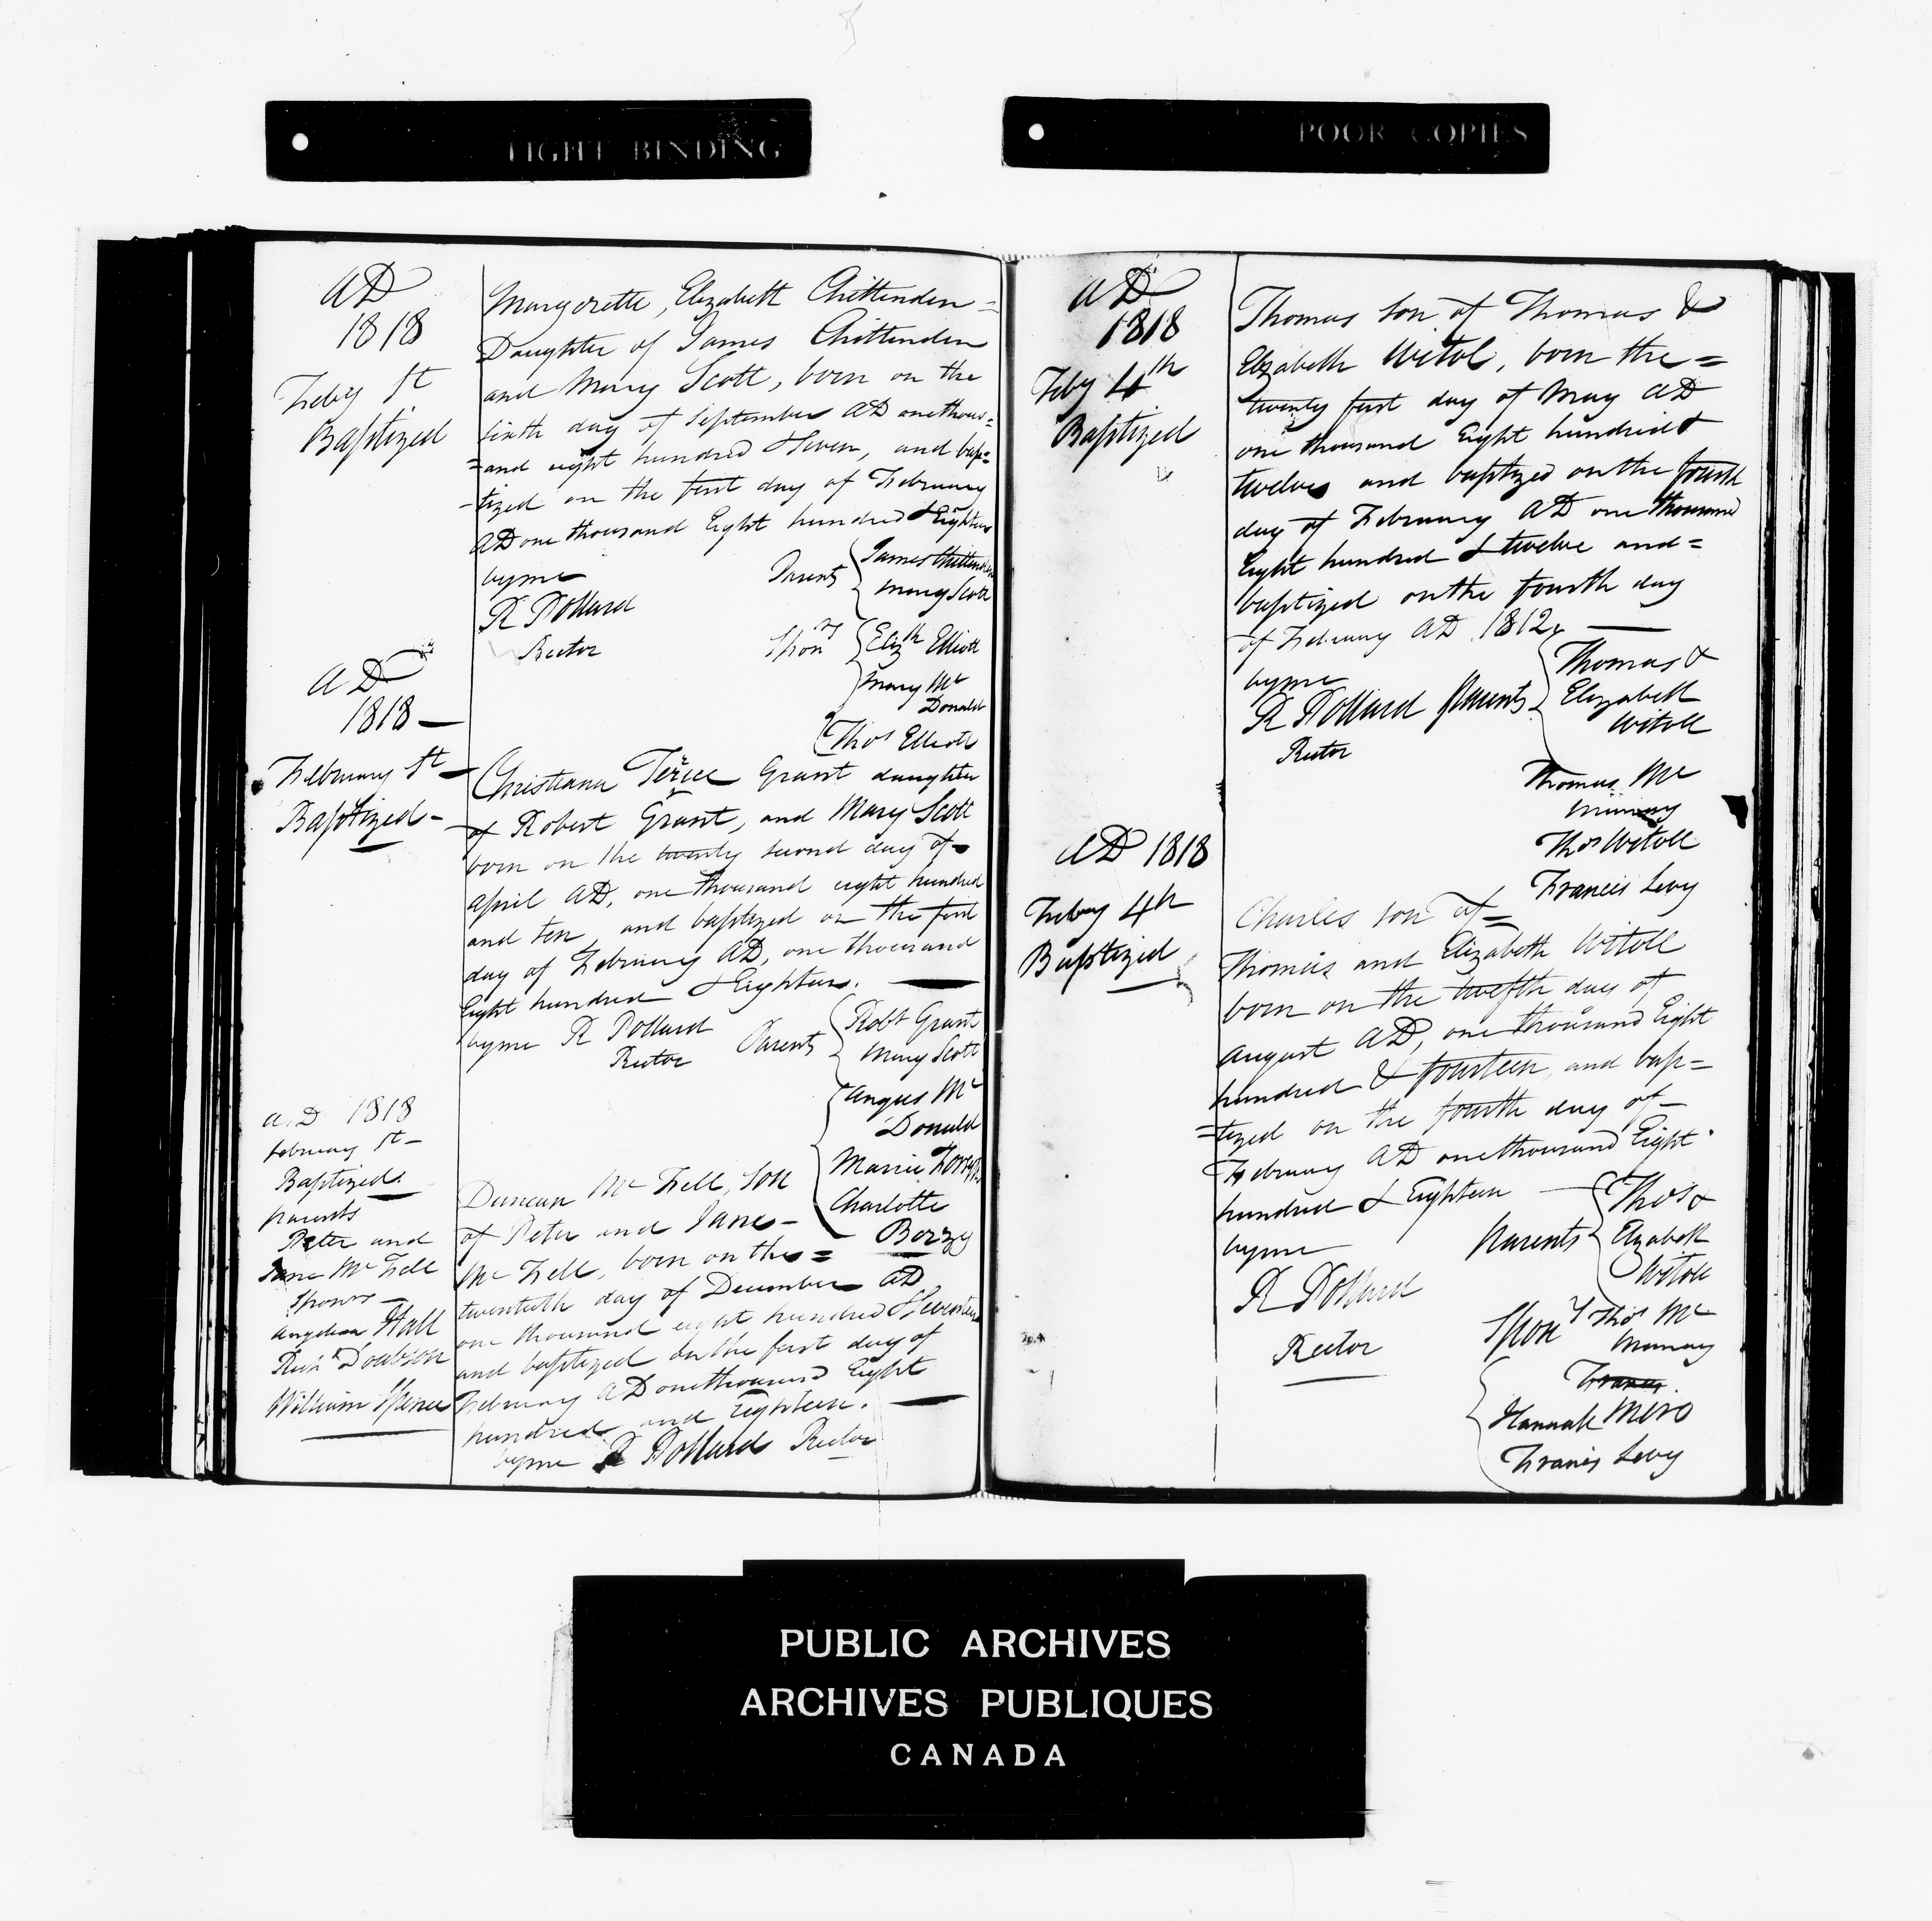 TIGHT BINDING
POOR COPIES
AD
1818
Feby 1st
Baptized
Margerette, Elizabeth Chittenden =
Daughter of James Chittenden
and Mary Scott, born on the
sixth day of September AD one thous=
=and eight hundred & seven, and bap=
=tized on the first day of February
AD one thousand Eight hundred & Eighteen
by me
R Pollard
Rector
Parents
James Chittenden
Mary Scott
Spons
Elizth Elliott
Mary Mc
Donald
Thos Elliott
AD
1818 —
February 1st —
Baptized –
Christiana Grant daughter
of Robert Grant, and Mary Scott
born on the twenty second day of –
April AD, one thousand eight hundred
and ten, and baptized on the first
day of February AD, one thousand
Eight hundred & Eighteen. —
by me R Pollard
Rector
Parents
Robt Grant
Mary Scott
Angus Mc
Donald
Charlotte
Berzy
A.D 1818
February 1st –
Baptized.
parents
Peter and
Jane Mc Fell
Sponrs –
Angelica Hall
Richd Doubson
William Spence
Duncan Mc Fell, son
of Peter and Jane –
Mc Fell, born on the =
twentieth day of December AD
one thousand eight hundred & seventeen
and baptized on the first day of
February AD one thousand Eight
hundred and Eighteen. —
by me R Pollard Rector
AD
1818
Feby 4th
Baptized
Thomas son of Thomas &
Elizabeth Witol, born the =
twenty first day of May AD
one thousand Eight hundred &
twelve and baptized on the fourth
day of February AD one thousand
Eight hundred & twelve and =
baptized on the fourth day
of February AD 1812 —
by me
R Pollard
Rector
Parents
Thomas &
Elizabeth
Witoll
Thomas Mc
Murray
Thos Witoll
Francis Levy
AD 1818
Feby 4th
Baptized
Charles son of =
Thomas and Elizabeth Witoll
born on the twelfth day of
August AD, one thousand Eight
hundred & fourteen, and bap=
=tized on the fourth day of –
February AD one thousand Eight
hundred & Eighteen —
by me
R Pollard
Rector
Parents
Thos &
Elizabeth
Witoll
Spons
Thos Mc
Murray
Francis
Hannah Miro
Francis Levy
PUBLIC ARCHIVES
ARCHIVES PUBLIQUES
CANADA